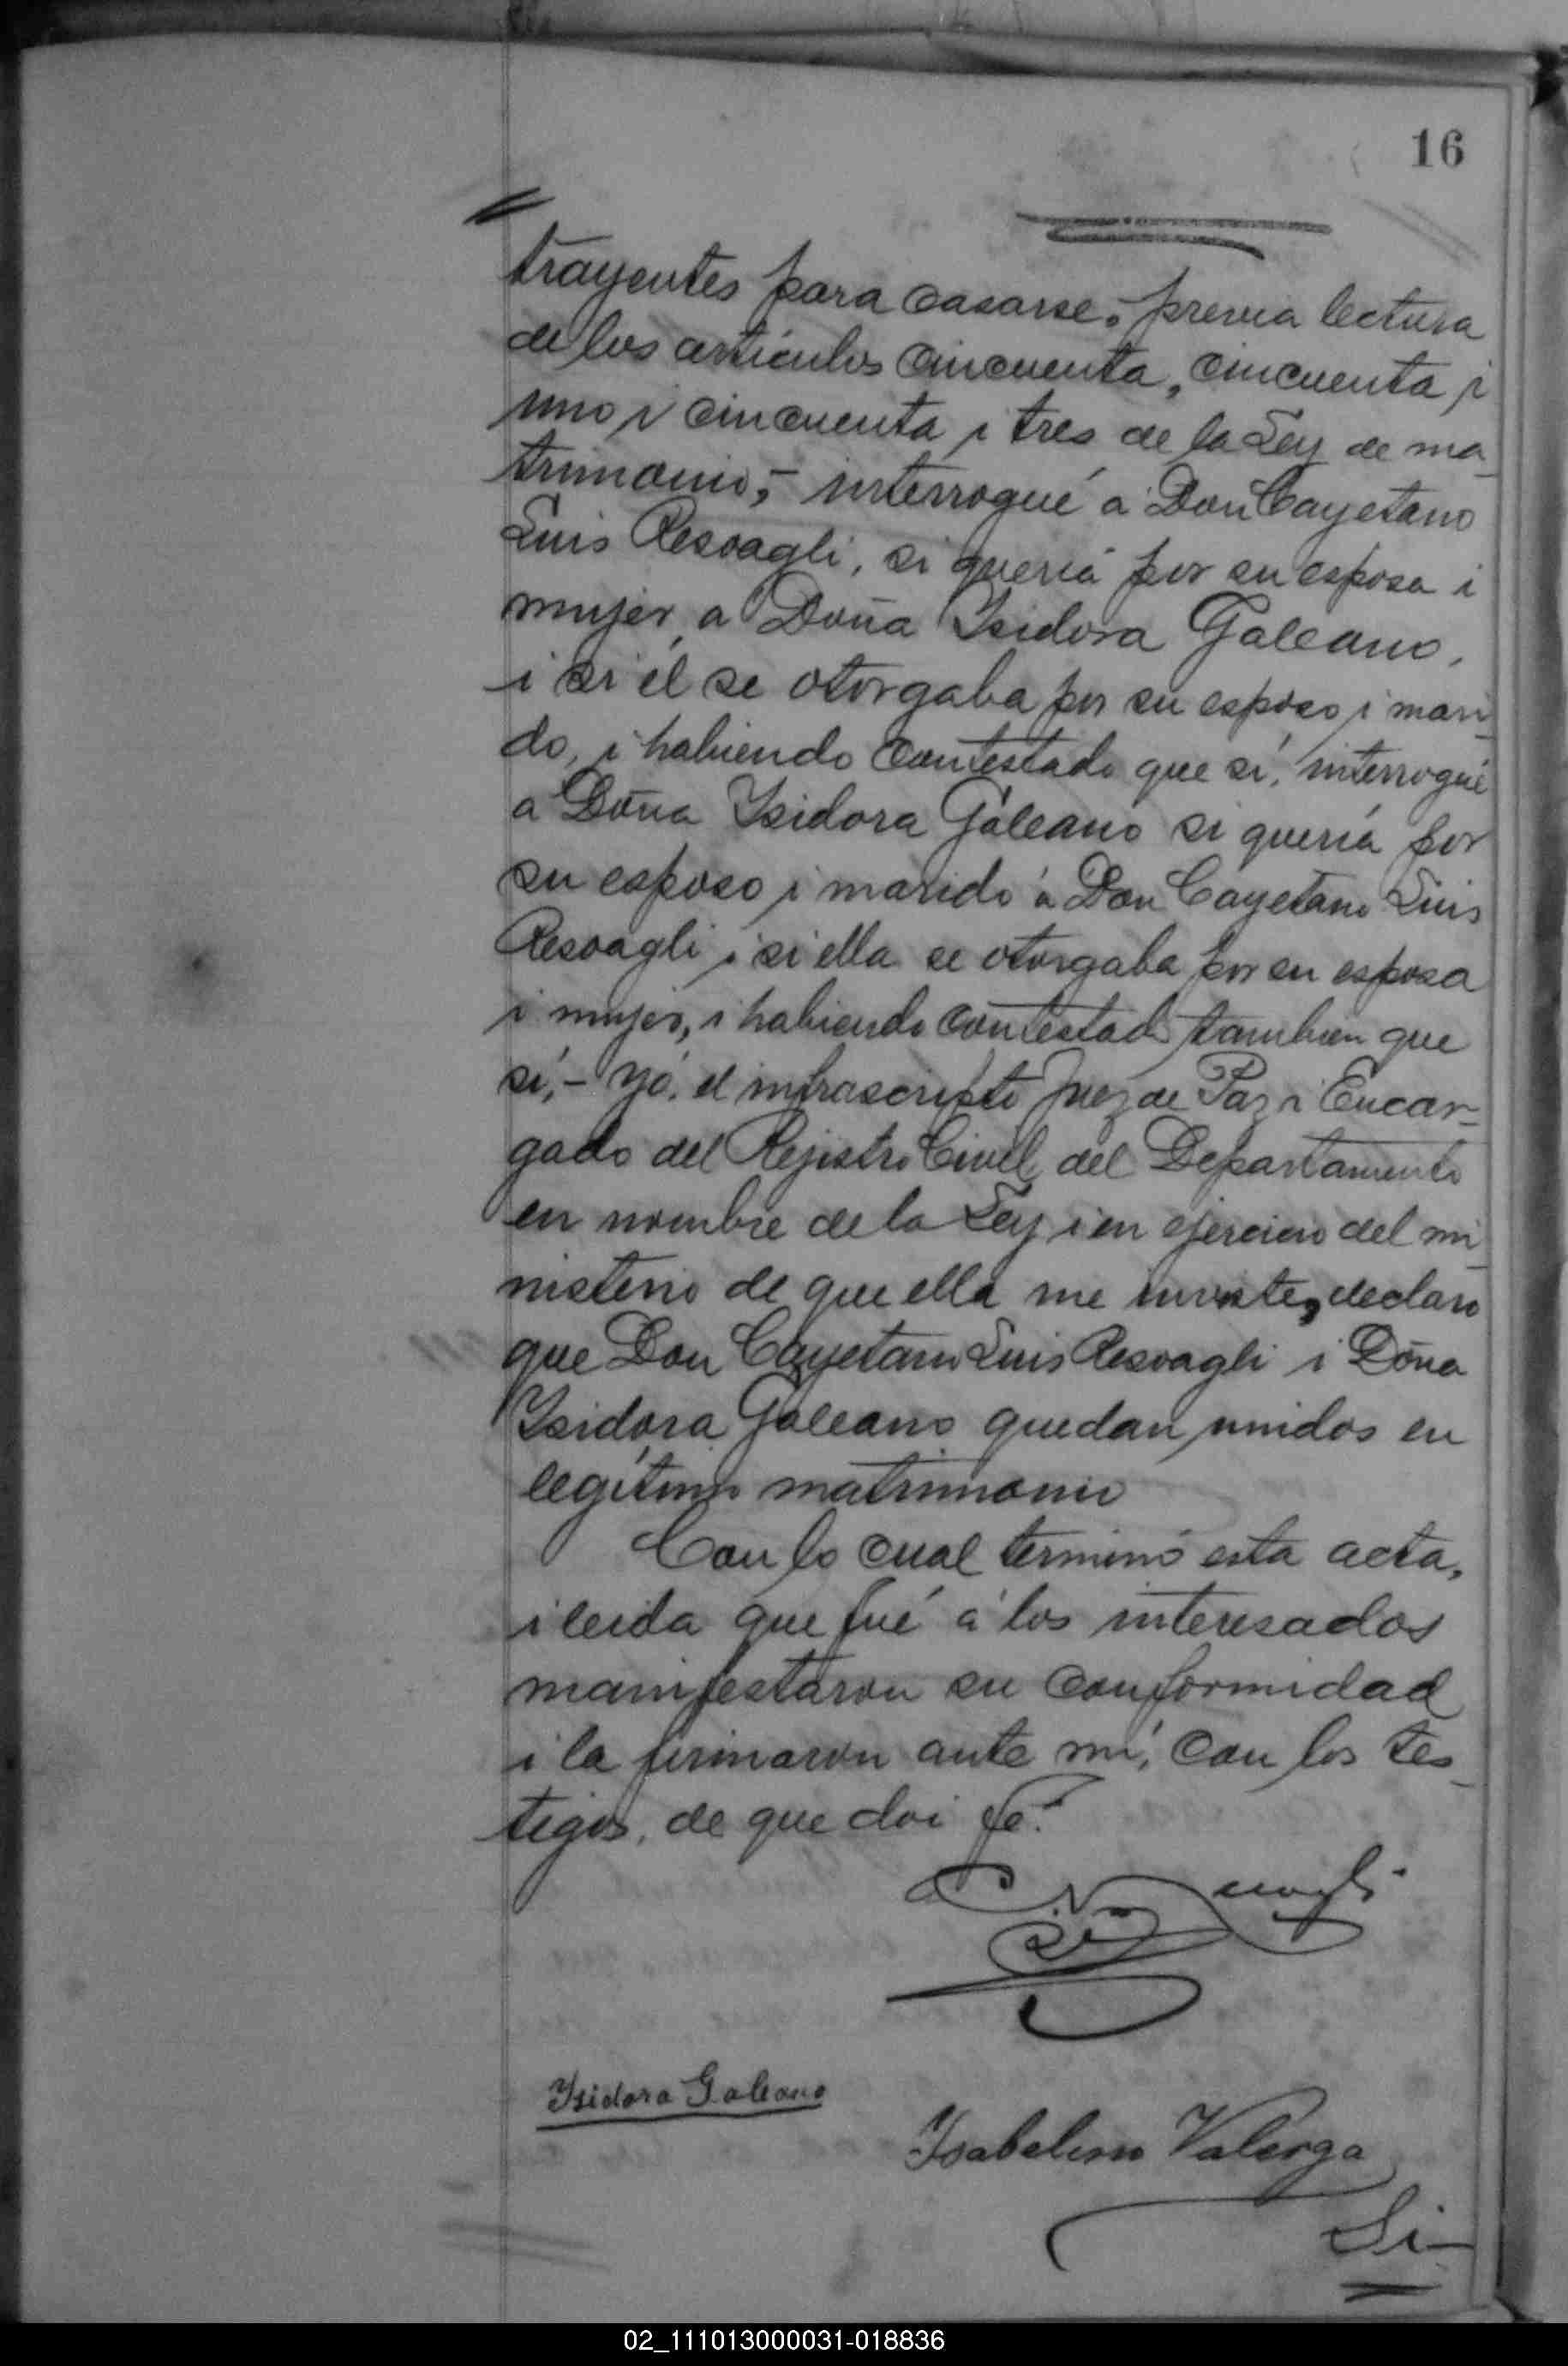 16
trayentes para casarse; - previa lectura
de los artículos cincuenta, cincuenta i
uno i cincuenta i tres de la Ley de ma_
trimonio, - interrogué á Don Cayetano
Luis Resoagli, si quería por su esposa i
mujer, a Doña Isidora Galeano,
i si él se otorgaba por su esposo i mari_
do, i habiendo contestado que sí, interrogué
a Doña Isidora Galeano si quería por
su esposo i marido á Don Cayetano Luis
Resoagli i si ella se otorgaba por su esposa
i mujer, i habiendo contestado tambien que
sí, - Yó, el infrascripto Juez de Paz i Encar_
gado del Rejistro Civil del Departamento
en nombre de la Ley i en ejercicio del mi_
nisterio de que ella me inviste, declaro
que Don Cayetano Luis Resoagli i Doña
Isidora Galeano quedan unidos en
legítimo matrimonio
Con lo cual terminó esta acta,
i leida que fué á los interesados
manifestaron su conformidad
i la firmaron ante mí, con los tes_
tigos, de que doi fé.
Isidora Galeano
Isabelino Valenga
Si-
02_111013000031-018836